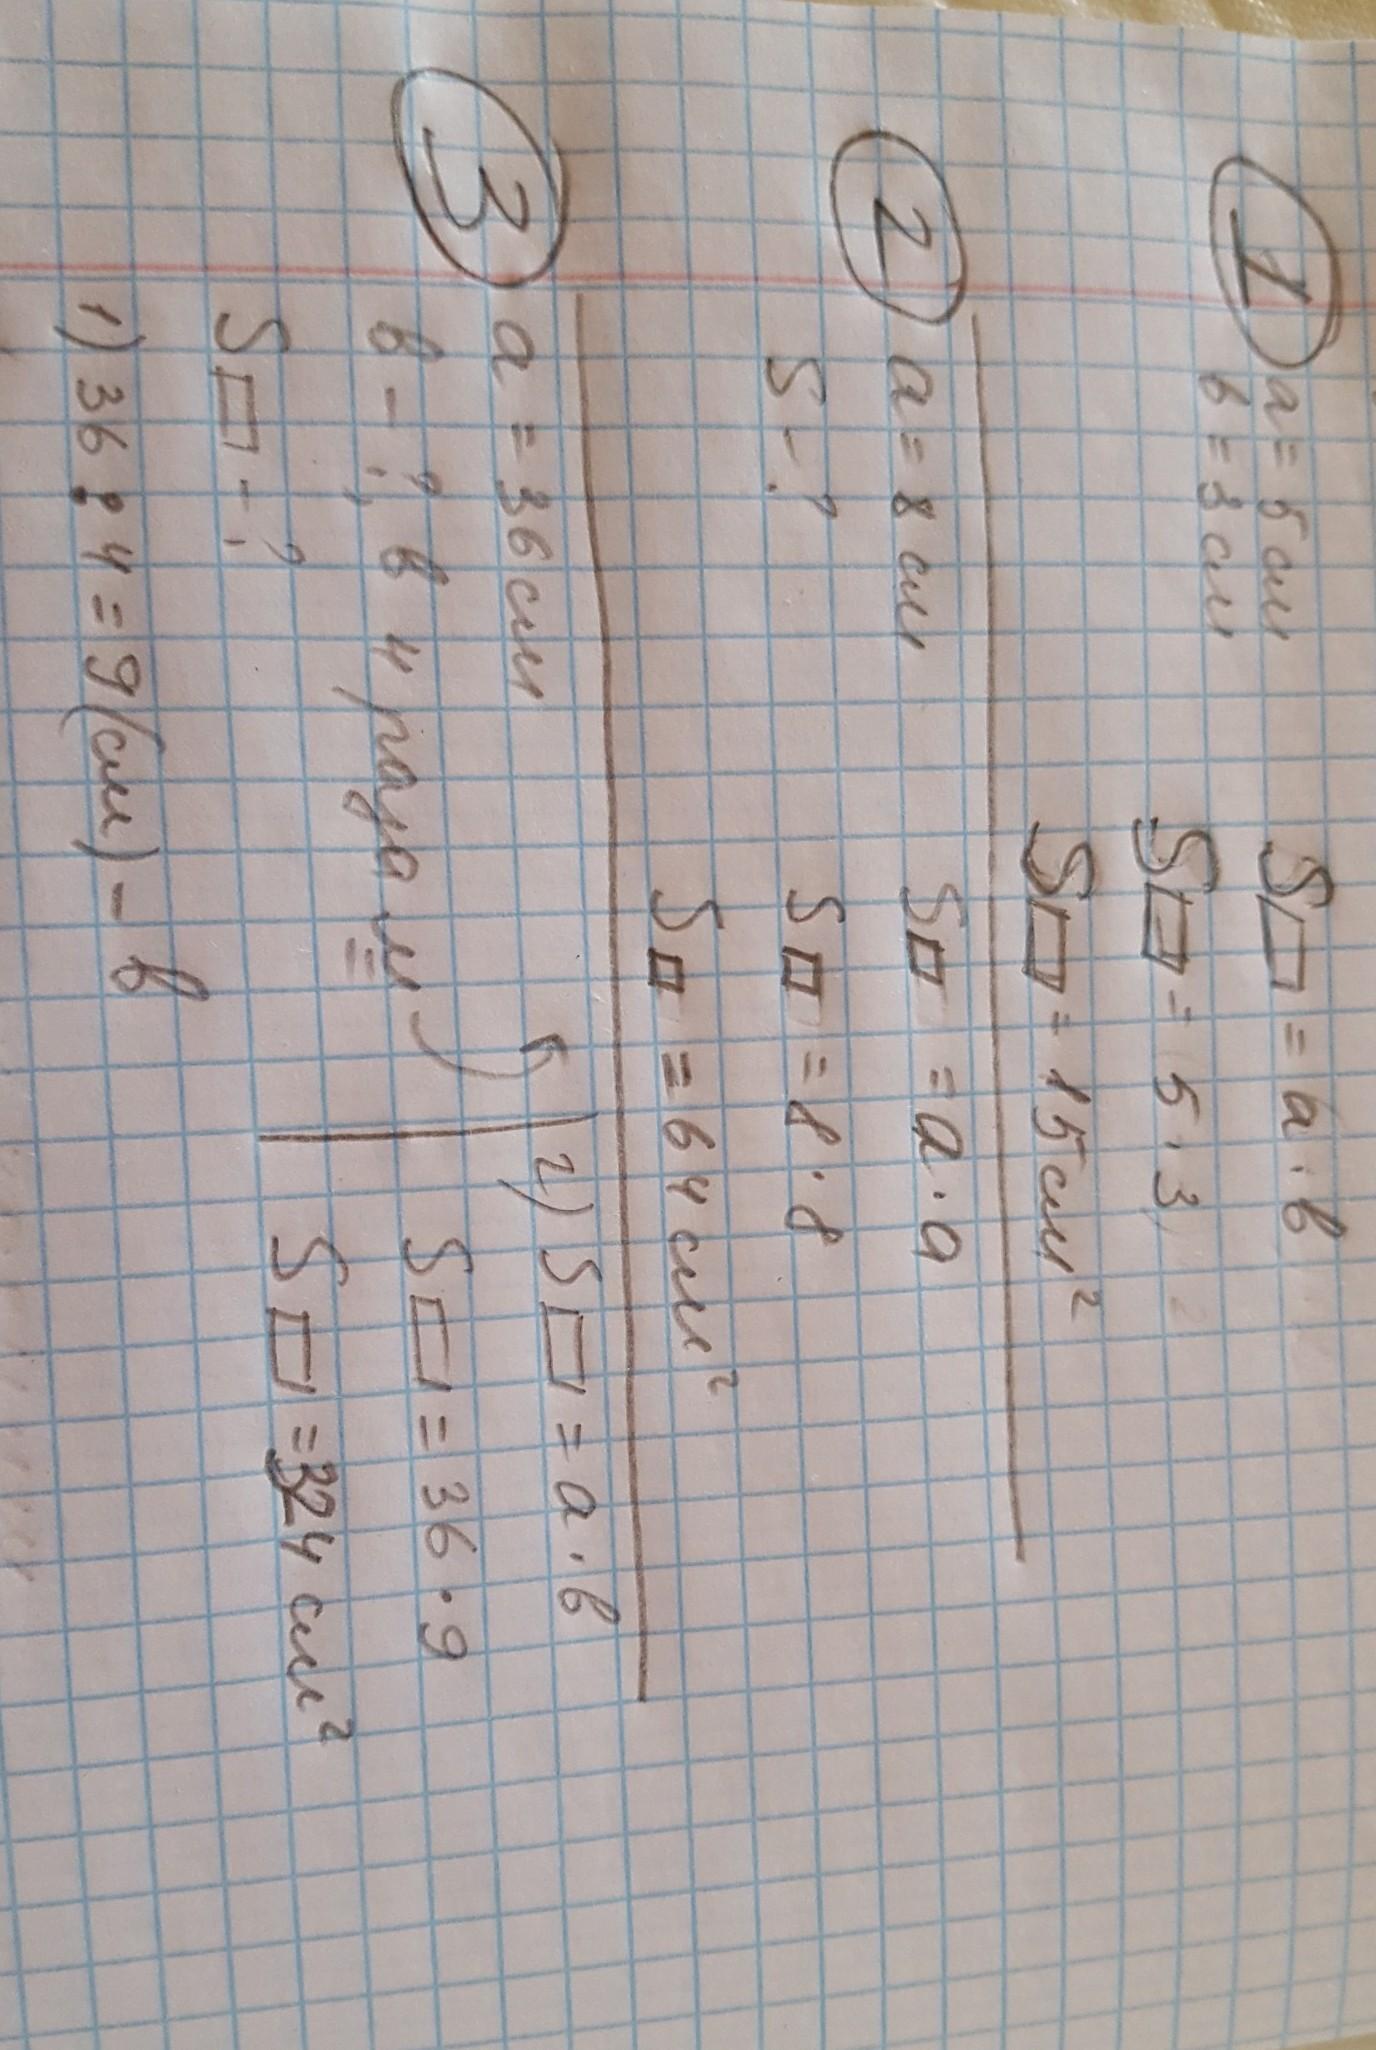 1 a = 5 см
в = 3 см
S▭ = a · в
S▭ = 5 · 3
S▭ = 15 см²
2 a = 8 см
S - ?
S□ = a · a
S□ = 8 · 8
S□ = 64 см²
3 a = 36 см
в - ?, в 4 раза м
S▭ - ?
1) 36 : 4 = 9 (см) - в
2) S▭ = a · в
S▭ = 36 · 9
S▭ = 324 см²